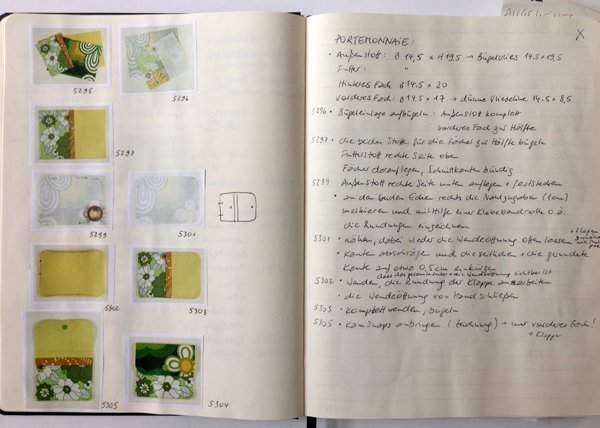 5295
5296
5297
5299
5301
5302
5303
5305
5304
AUGEN
X
PORTEMONNAIE:
• Außenstoff: B 14,5 x H 19,5 → Bügelvlies 14,5 x 19,5
Futter: "
Hinteres Fach B 14.5 x 20
Vorderes Fach: B 14.5 x 17 → dünne Vlieseline 14.5 x 8,5
5296 • Bügeleinlage aufbügeln: Außenstoff komplett
vorderes Fach zur Hälfte
5297 • die beiden Stoffe für die Fächer zur Hälfte bügeln
Futterstoff rechte Seite oben
Fächer darauflegen, Schnittkanten bündig
5299 Außenstoff rechte Seite unten auflegen + feststecken
• an den beiden Ecken rechts die Nahtzugaben (1cm)
markieren und mithilfe einer Klebebandrolle o.ä.
die Rundungen einzeichnen
5301 • nähen, dabei wieder die Wendeöffnung offen lassen
• Kanten abschrägen und die seitlichen + die gerundete
Kante auf etwa 0,5cm einkürzen
5302 • wenden, die Rundung der Klappe ausarbeiten
• die Wendeöffnung von Hand schließen
5303 • komplett wenden, bügeln
5305 • KamSnaps anbringen (Zeichnung) → nur vorderes Fach!
+ Klappe